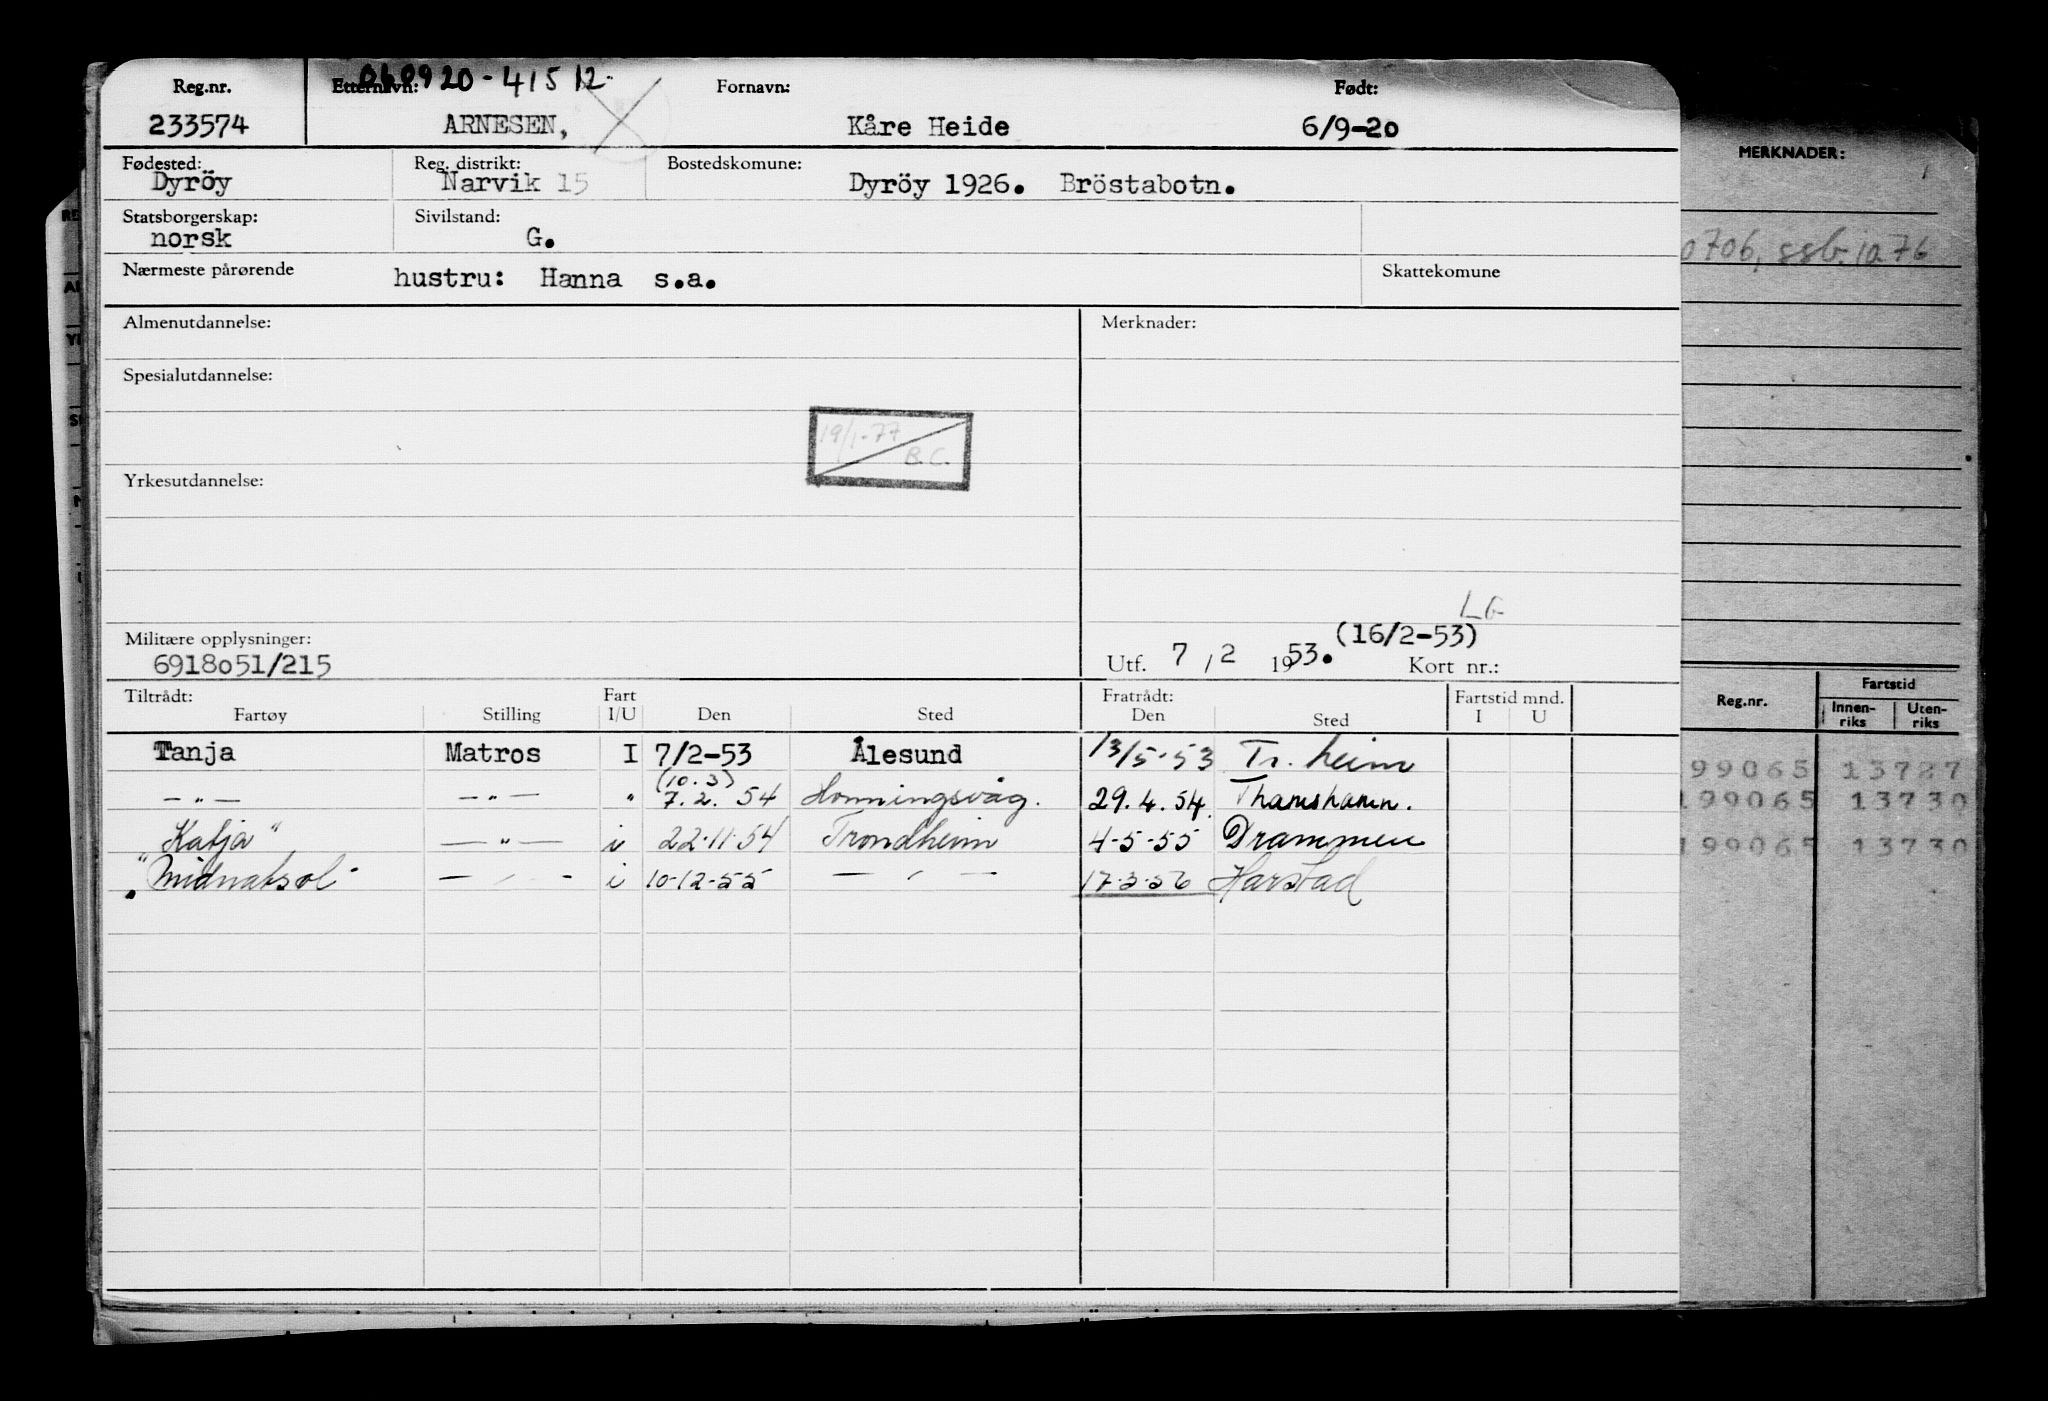 060920-41512.
Reg.nr. Etternavn: Fornavn: Født:
233574 ARNESEN, Kåre Heide 6/9-20
Fødested: Reg. distrikt: Bostedskomune:
Dyröy Narvik 15 Dyröy 1926. Bröstabotn.
Statsborgerskap: Sivilstand:
norsk G.
Nærmeste pårørende hustru: Hanna s.a. Skattekomune
Almenutdannelse: Merknader:
Spesialutdannelse:
19/1-77
B.C.
Yrkesutdannelse:
Militære opplysninger: (16/2-53)
6918o51/215 Utf. 7 / 2 1953. Kort nr.:
Tiltrådt: Fart Fratrådt: Fartstid mnd.
Fartøy Stilling I/U Den Sted Den Sted I U
Tanja Matros I 7/2-53 Ålesund 13/5-53 Tr.heim
(10.3)
—"— —"— " 7.2. 54 Honningsvåg. 29.4.54. Thamshamn.
Katja" —"— i 22-11-54 Trondheim 4-5-55 Drammen
"Midnatsol" —"— i 10-12-55 —"— 17-3-56 Harstad
MERKNADER:
0706, ssb. 10.76
Reg.nr. Fartstid
Innen-riks Uten-riks
99065 13727
199065 13730
199065 13730